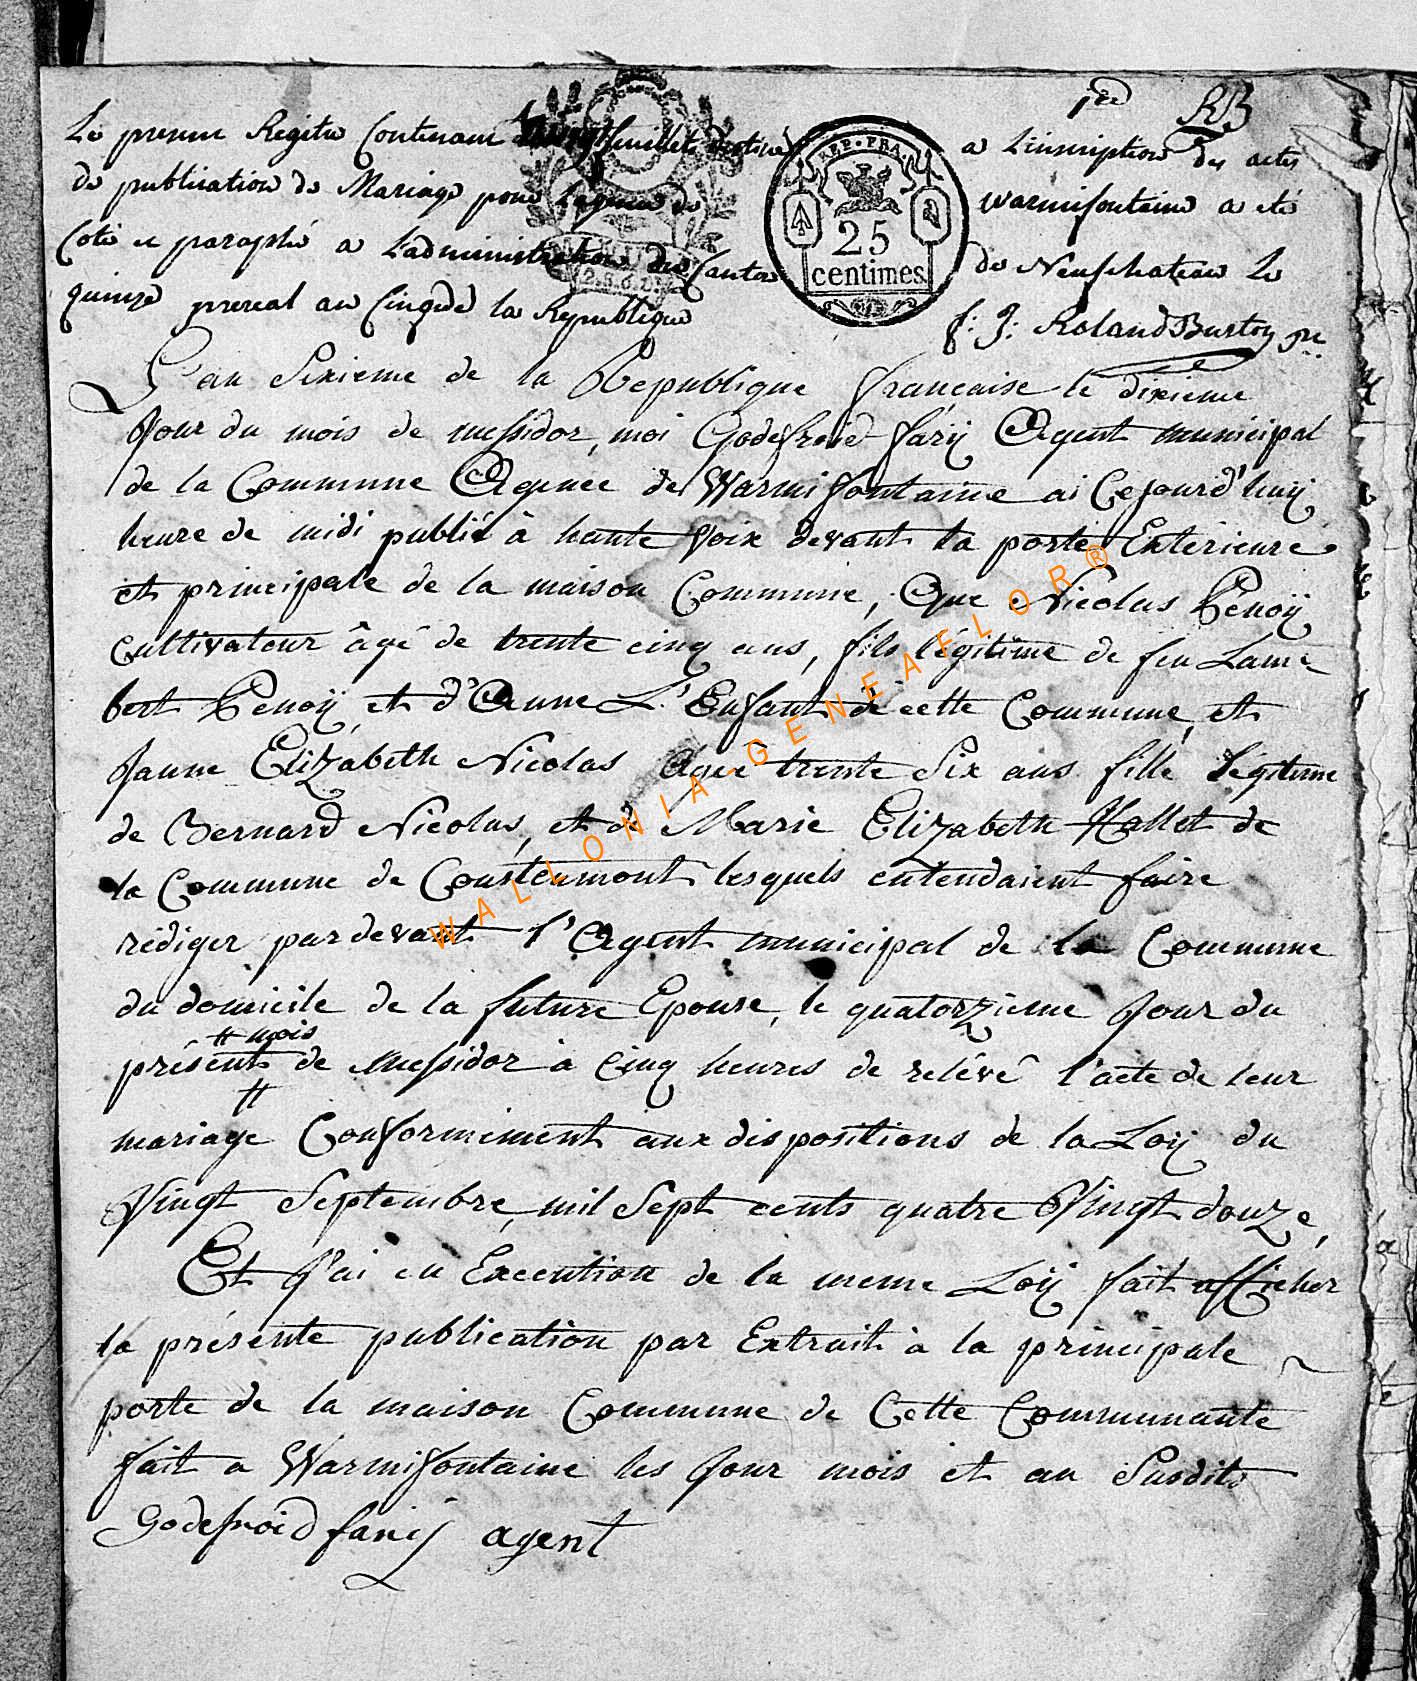 1er RB
Le present Registre Contenant feuillets destiné a L'inscription des actes
de publication de Mariage pour L'agence de Warmifontaine a eté
Coté et paraphé a L'administration du Canton de Neufchateau Le
quinze prereal an Cinq de la Republique
f: J: Roland Burton
REP. FRA.
25
centimes
L'an Sixieme de la Republique française le dixieme
Jour du mois de messidor, moi Godefroid farÿ Agent municipal
de la Commune Agence de Warmifontaine ai Cejourd'huy
heure de midi publié à haute voix devant la porte Exterieure
et principale de la maison Commune, Que Nicolas Penoÿ
Cultivateur âgé de trente cinq ans, fils légitime de feu Lam-
bert Penoÿ et d'Anne L'Enfant de cette Commune, et
Janne Elizabeth Nicolas Agée trente Six ans fille légitime
de Bernard Nicolas, et de Marie Elizabeth Hallet de
la Commune de Coustumont lesquels entendaient faire
rédiger pardevant l'Agent municipal de la Commune
du domicile de la future Epouse, le quatorzieme Jour du
# mois
présent de Messidor à Cinq heures de relévé l'acte de leur
#
mariage Conformement aux dispositions de la Loÿ du
Vingt Septembre, mil Sept cents quatre Vingt douze,
Et J'ai en Execution de la meme Loÿ fait afficher
la présente publication par Extrait à la principale ~
porte de la maison Commune de Cette Communaute
fait a Warmifontaine les Jour mois et an Susdits
Godefroid farij agent
WALLONIA-GENEAFLOR®